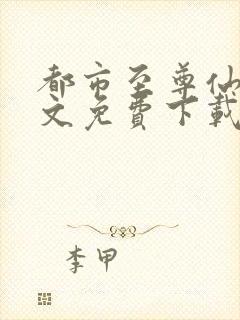 都市至尊仙
文免費下載
李甲